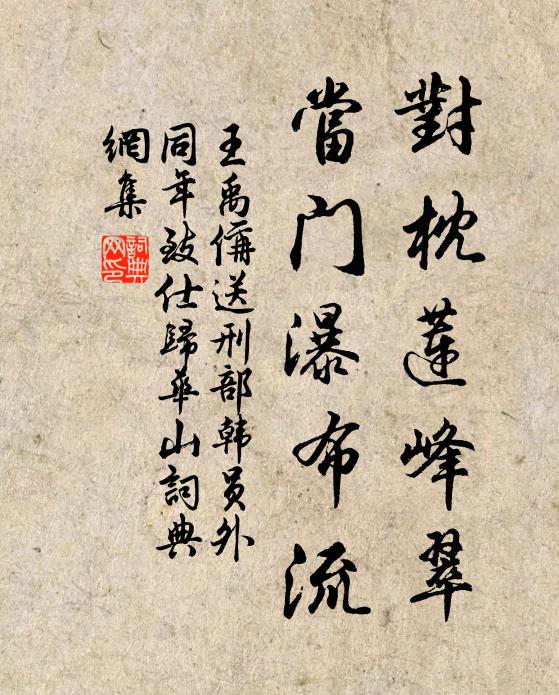 對枕蓮峰翠
當门瀑布流
王禹偁送刑部韩员外
同年致仕歸華山詞典
網集
詞典
网印